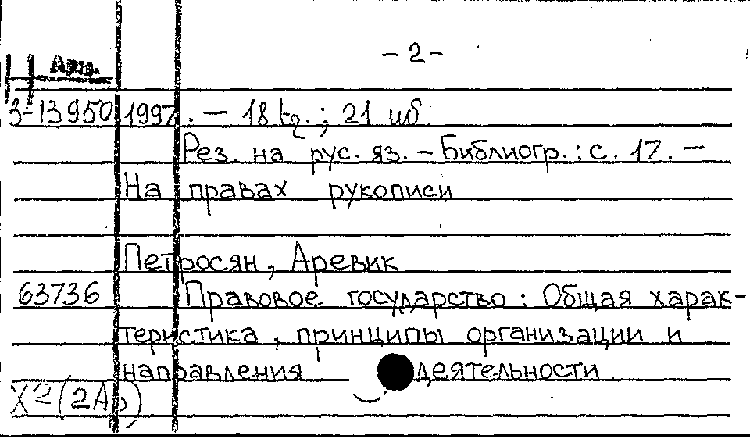 - 2 -
Арм.
3-13950 1997. — 18 էջ.; 21 սմ.
Рез. на рус. яз. - Библиогр.: с. 17. —
На правах рукописи
Петросян, Аревик
63736 Правовое государство : Общая харак-
теристика, принципы организации и
направления деятельности